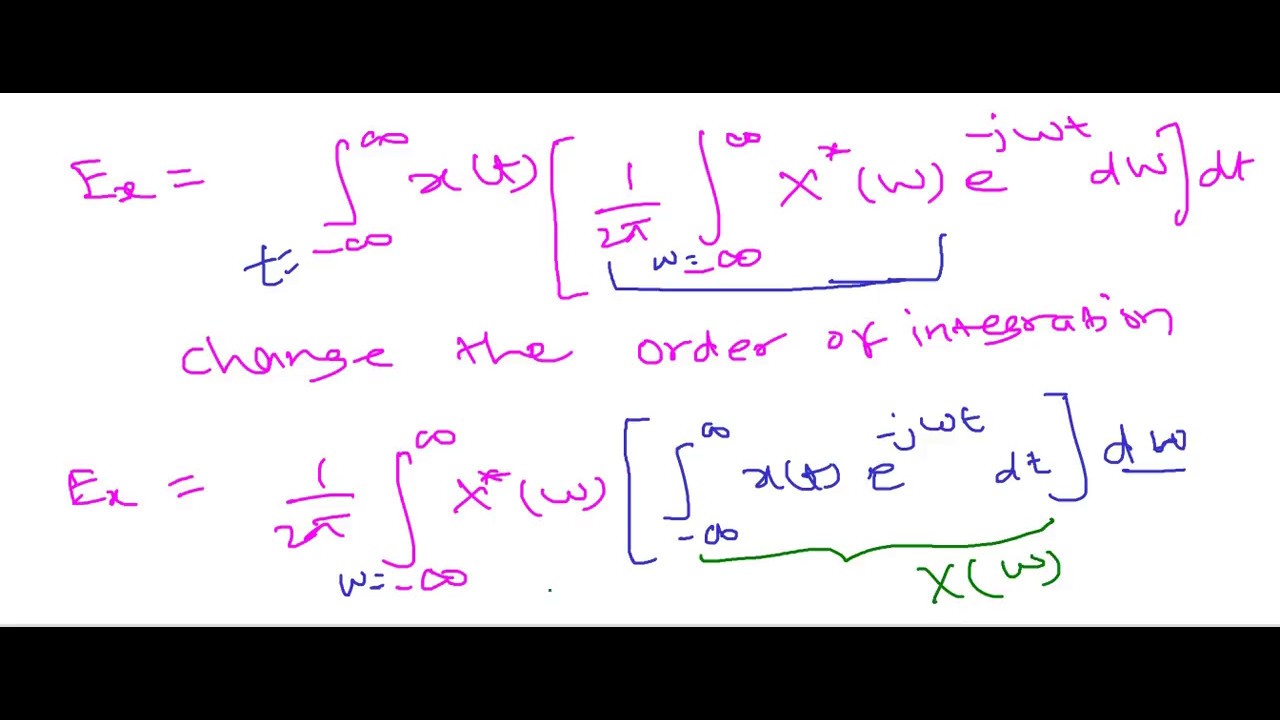 Ex = ∫_{t=-∞}^{∞} x(t) [ 1/2π ∫_{w=-∞}^{∞} X*(w) e^{-jwt} dw ] dt
change the order of integration
Ex = 1/2π ∫_{w=-∞}^{∞} X*(w) [ ∫_{-∞}^{∞} x(t) e^{-jwt} dt ] dw
X(w)